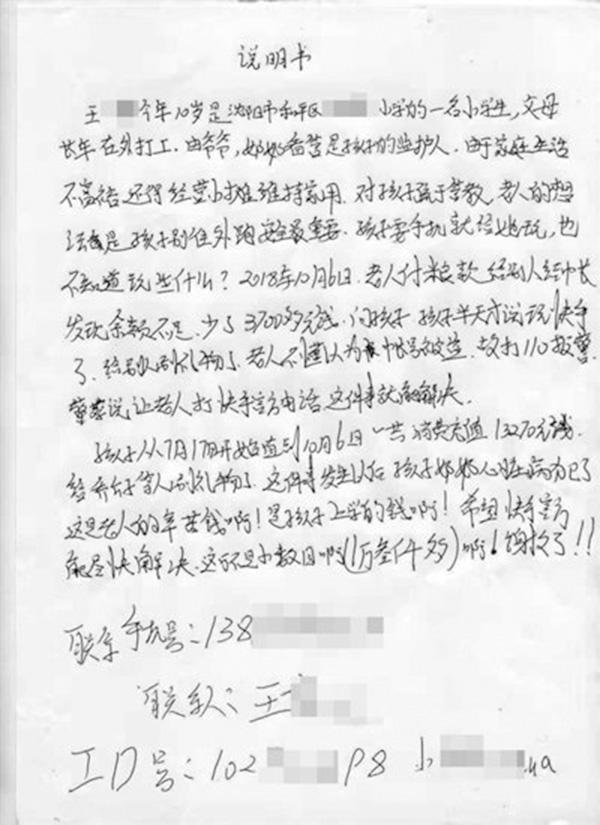 说明书
王 今年10岁是沈阳市和平区 小学的一名小学生,父母
长年在外打工.由爷爷,奶奶看管是孩子的监护人.由于家庭生活
不富裕还得经营小摊维持家用.对孩子疏于管教.老人的想
法就是孩子别往外跑安全最重要.孩子要手机就给她玩,也
不知道玩些什么?2018年10月6日.老人付米款给别人
发现余额不足.少了3700多元钱.问孩子 孩子半天才说玩快手
了.给别人刷礼物了.老人不懂认为帐号被盗.故打110报警.
警察说让老人打快手官方电话.这件事就能解决.
孩子从7月17日开始直到10月6日一共消费充值13270元钱
给 等人刷礼物了.这件事发生以后孩子奶奶心脏病力已了
这是老人的辛苦钱啊!是孩子上学的钱啊!希望快手官方
能尽快解决.这可不是小数目啊(1万叁仟多)啊!谢谢了!!
联系手机号:138
联系人:王
ID号:102 P8 小 .ua